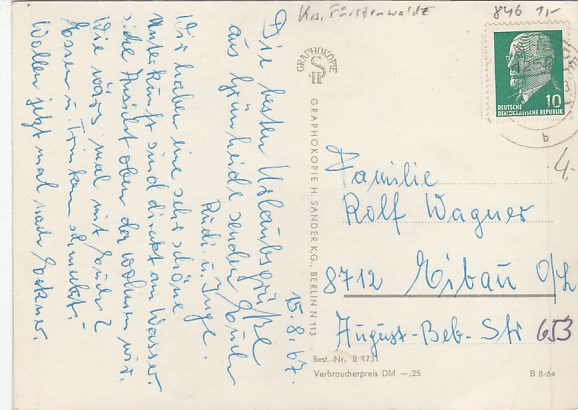 Krs. Fürstenwalde
846 1,-
15.8.67.
Die besten Urlaubsgrüße
aus Grünheide senden Euch
Rudi u. Inge.
Wir haben eine sehr schöne
Unterkunft sind direkt am Wasser.
siehe Ansicht oben da wohnen wir.
Wie wärs mal mit Euch?
Essen u Trinken schmeckt.
Wollen jetzt mal nach
GRAPHOKOPIE
SH
GRAPHOKOPIE H. SANDER K.G., BERLIN N 113
DEUTSCHE
DEMOKRATISCHE REPUBLIK
10
b
4,-
Familie
Rolf Wagner
8712 Eibau O/L
August-Beb-Str 653
Best.-Nr. B 1731
Verbraucherpreis DM —,25
B 8/64